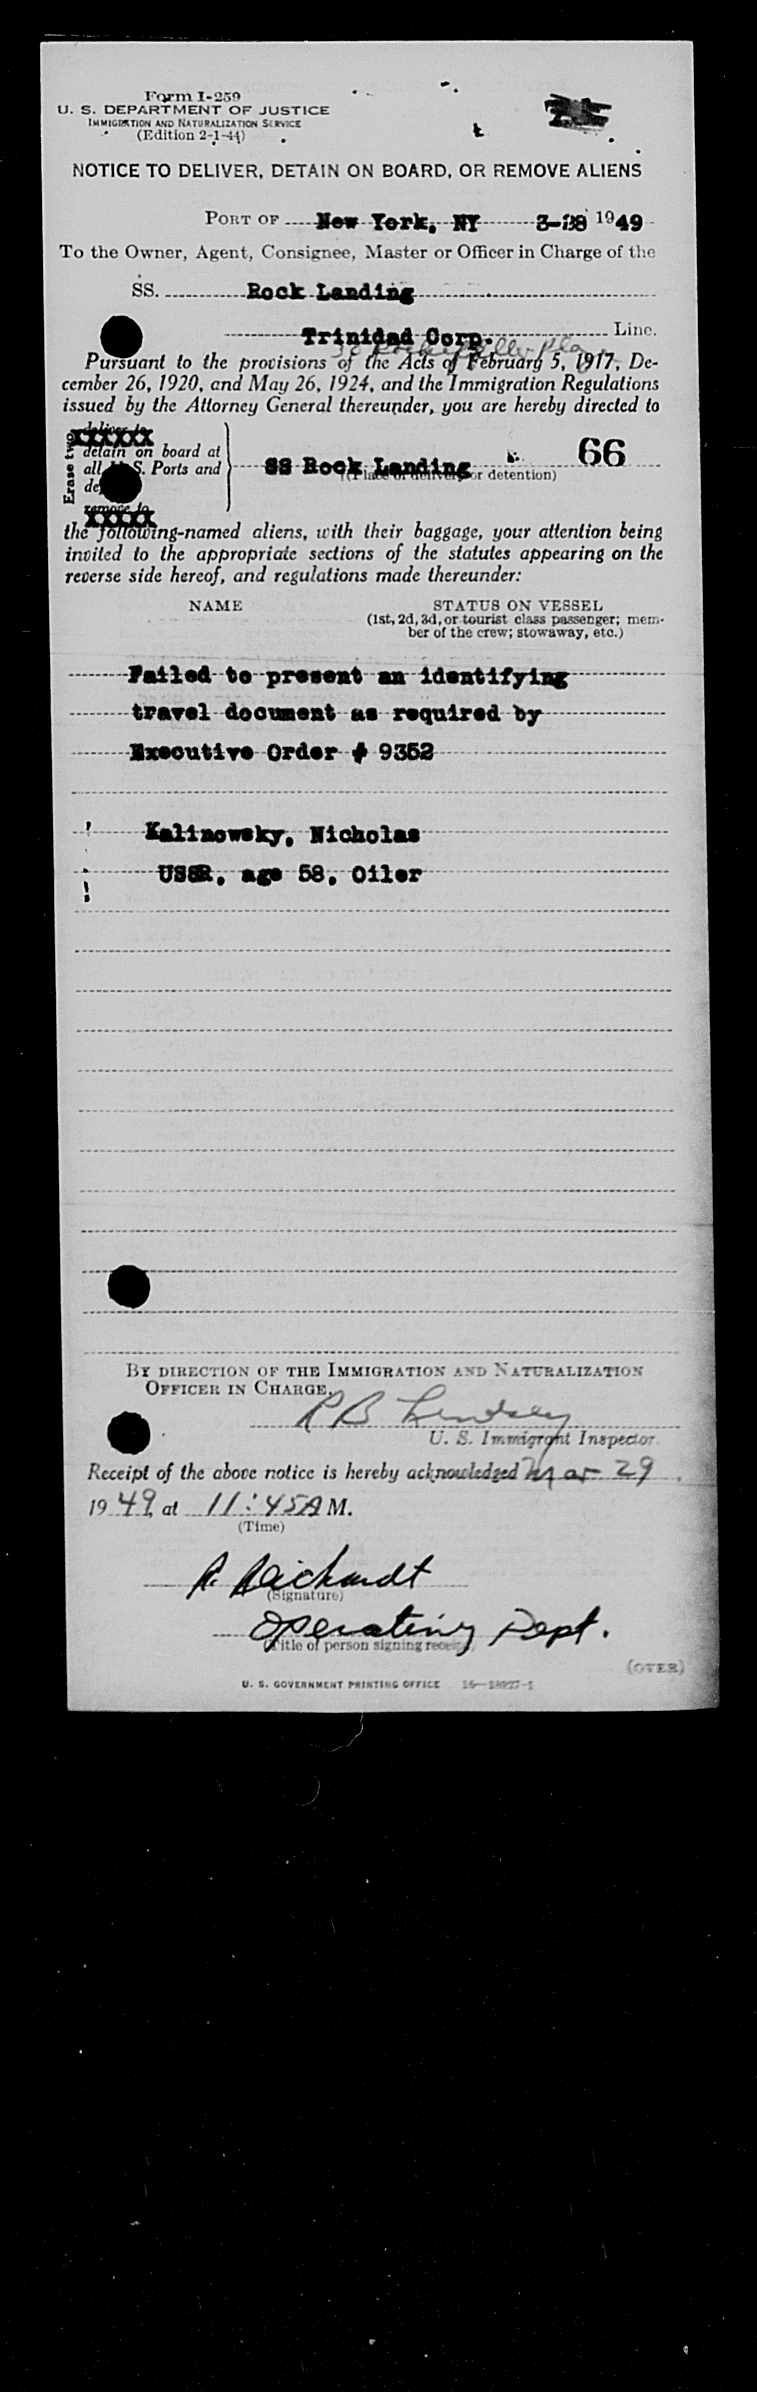 Form I-259
U. S. DEPARTMENT OF JUSTICE
IMMIGRATION AND NATURALIZATION SERVICE
(Edition 2-1-44)
NOTICE TO DELIVER, DETAIN ON BOARD, OR REMOVE ALIENS
PORT OF New York, NY 3-28 1949
To the Owner, Agent, Consignee, Master or Officer in Charge of the
SS. Rock Landing
Trinidad Corp. Line.
30 Rockefeller Plaza
Pursuant to the provisions of the Acts of February 5, 1917, De-
cember 26, 1920, and May 26, 1924, and the Immigration Regulations
issued by the Attorney General thereunder, you are hereby directed to
Erase two
deliver to
detain on board at
all U. S. Ports and
SS Rock Landing 66
(Place of delivery or detention)
remove to
the following-named aliens, with their baggage, your attention being
invited to the appropriate sections of the statutes appearing on the
reverse side hereof, and regulations made thereunder:
NAME STATUS ON VESSEL
(1st, 2d, 3d, or tourist class passenger; mem-
ber of the crew; stowaway, etc.)
Failed to present an identifying
travel document as required by
Executive Order # 9352
Kalinowsky, Nicholas
USSR, age 58, Oiler
BY DIRECTION OF THE IMMIGRATION AND NATURALIZATION
OFFICER IN CHARGE.
R B Lindsey
U. S. Immigrant Inspector.
Receipt of the above notice is hereby acknowledged Mar 29
1949, at 11:45A M.
(Time)
R. Reichardt
(Signature)
Operating Dept.
(Title of person signing receipt)
(OVER)
U. S. GOVERNMENT PRINTING OFFICE 16—18927-1